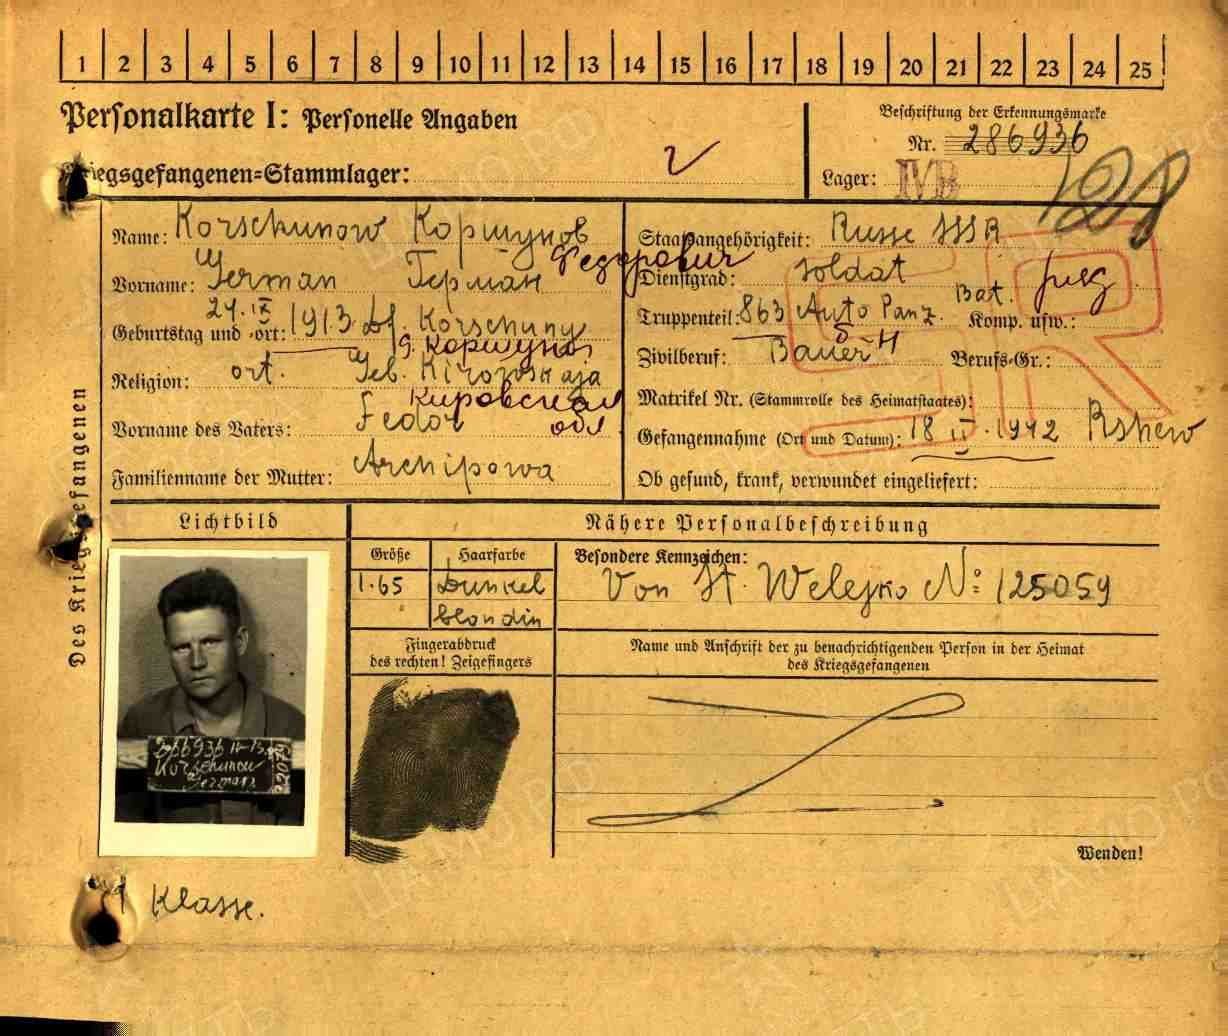 1 2 3 4 5 6 7 8 9 10 11 12 13 14 15 16 17 18 19 20 21 22 23 24 25
Personalkarte I: Personelle Angaben
Beschriftung der Erkennungsmarke
Nr. 286936
Kriegsgefangenen=Stammlager:
Lager: IVB
128
Des Kriegsgefangenen
Name: Korschunow Коршунов
Vorname: German Герман Федорович
Geburtstag und -ort: 24.IX 1913 Df. Korschuny
д. Коршуно
Religion: ort. Geb. Kirowskaja
Кировская
обл.
Vorname des Vaters: Fedor
Familienname der Mutter: Archipowa
Staatsangehörigkeit: Russe SSSR
Dienstgrad: Soldat
Truppenteil: 863 Auto Panz. Bat. Komp. usw.:
Zivilberuf: Bauer Berufs-Gr.:
Matrikel Nr. (Stammrolle des Heimatstaates):
Gefangennahme (Ort und Datum): 18 II. 1942 Rshew
Ob gesund, krank, verwundet eingeliefert:
Lichtbild
Nähere Personalbeschreibung
Größe
1.65
Haarfarbe
Dunkel
blondin
Besondere Kennzeichen:
Von St. Welejko No: 125059
Fingerabdruck
des rechten! Zeigefingers
Name und Anschrift der zu benachrichtigenden Person in der Heimat
des Kriegsgefangenen
286936
Korschunow
German
Wenden!
Klasse.